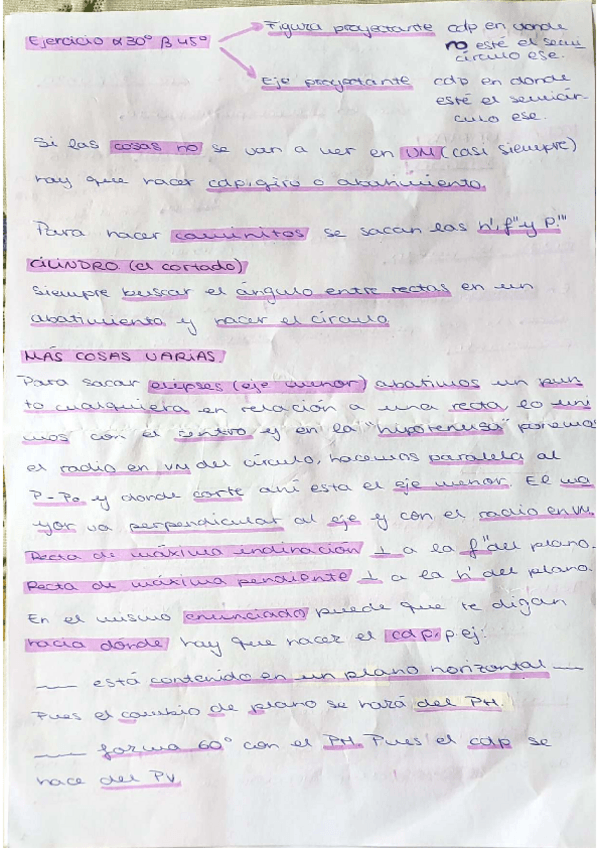 Ejercicio α30º β45º
Figura proyectante cdp en donde
no esté el semi
círculo ese.
Eje proyectante cdp en donde
esté el semicír-
culo ese.
Si las cosas no se van a ver en VM (casi siempre)
hay que hacer cdp, giro o abatimiento.
Para hacer caminitos se sacan las h', f'' y p'''
CILINDRO (el cortado)
Siempre buscar el ángulo entre rectas en un
abatimiento y hacer el círculo
MÁS COSAS VARIAS.
Para sacar elipses (eje menor) abatimos un pun
to cualquiera en relación a una recta, lo uni
mos con el centro y en la "hipotenusa" ponemos
el radio en VM del círculo, hacemos paralela al
P-P₀ y donde corte ahí esta el eje menor. El ma
yor va perpendicular al eje y con el radio en VM.
Recta de máxima inclinación ⊥ a la f'' del plano.
Recta de máxima pendiente ⊥ a la h' del plano.
En el mismo enunciado puede que te digan
hacia dónde hay que hacer el cdp, p.ej:
___ está contenido en un plano horizontal ___
Pues el cambio de plano se hará del PH.
___ forma 60º con el PH. Pues el cdp se
hace del PV.